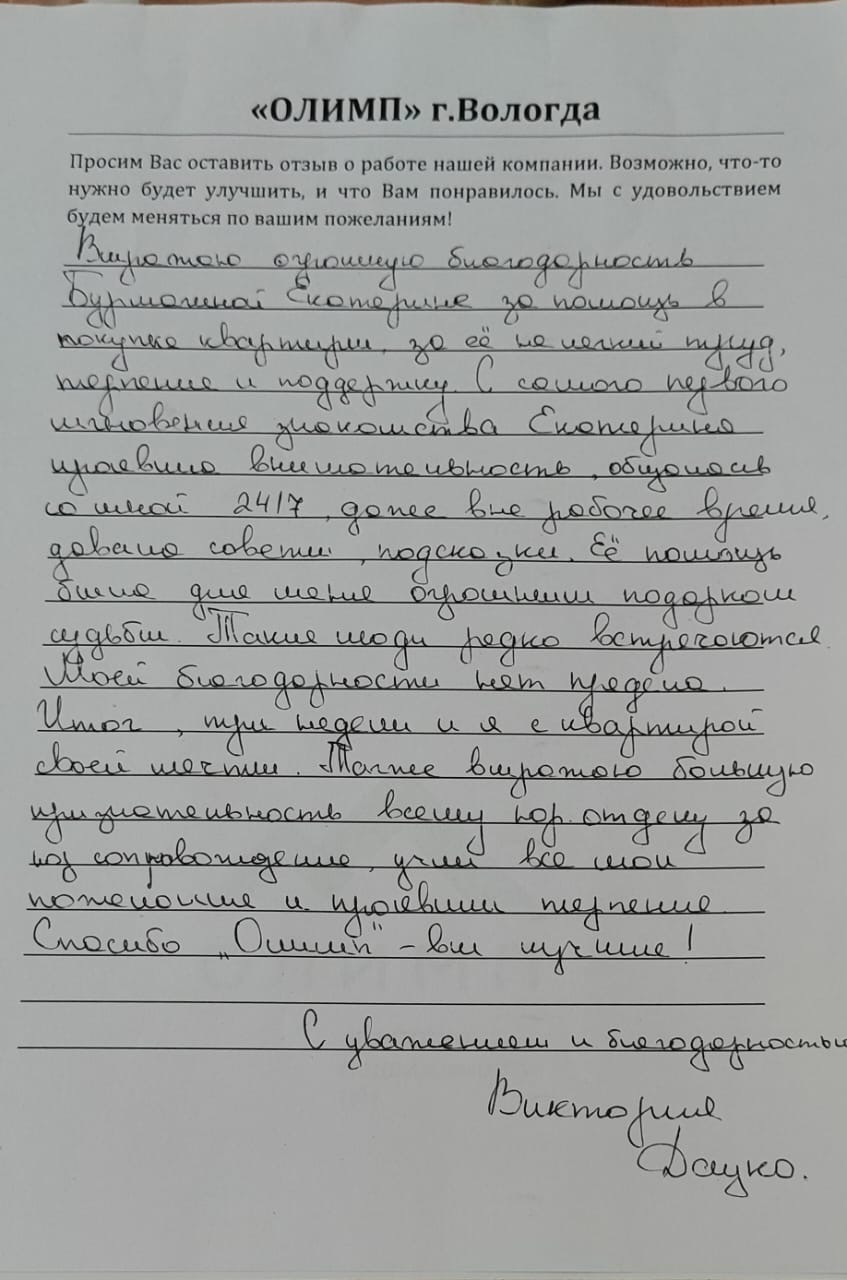 «ОЛИМП» г.Вологда
Просим Вас оставить отзыв о работе нашей компании. Возможно, что-то
нужно будет улучшить, и что Вам понравилось. Мы с удовольствием
будем меняться по вашим пожеланиям!
Выражаю огромную благодарность
Екатерине за помощь в
покупке квартиры, за её не легкий труд,
терпение и поддержку. С самого первого
мгновения знакомства Екатерина
проявила внимательность, общалась
со мной 24/7, далее вне рабочее время,
давала советы, подсказки. Её помощь
была для меня огромным подарком
судьбы. Такие люди редко встречаются.
Моей благодарности нет предела.
Итог, три недели и я с квартирой
своей мечты. Также выражаю большую
признательность всему юр. отделу за
юр сопровождение, учли все мои
пожелания и проявили терпение.
Спасибо „Олимп" - вы лучшие!
С уважением и благодарностью
Виктория